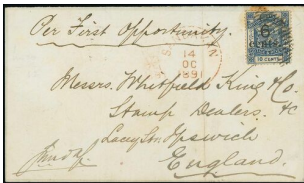 Per First Opportunity.
14
OC
89
6
cents.
10 CENTS
Messrs. Whitfield King & Co.
Stamp Dealers. &c
Lacey St. Ipswich
England.